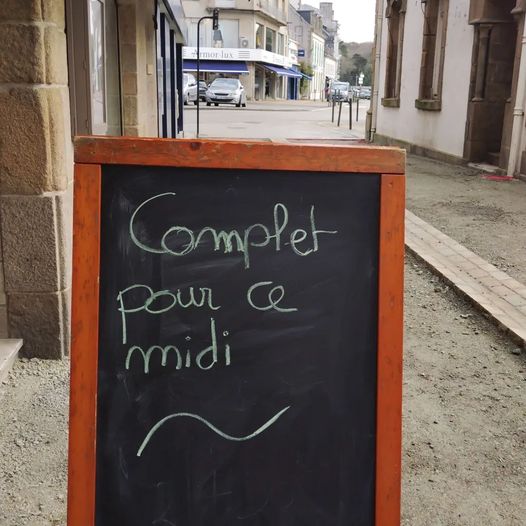 Armor·lux
Complet
pour ce
midi